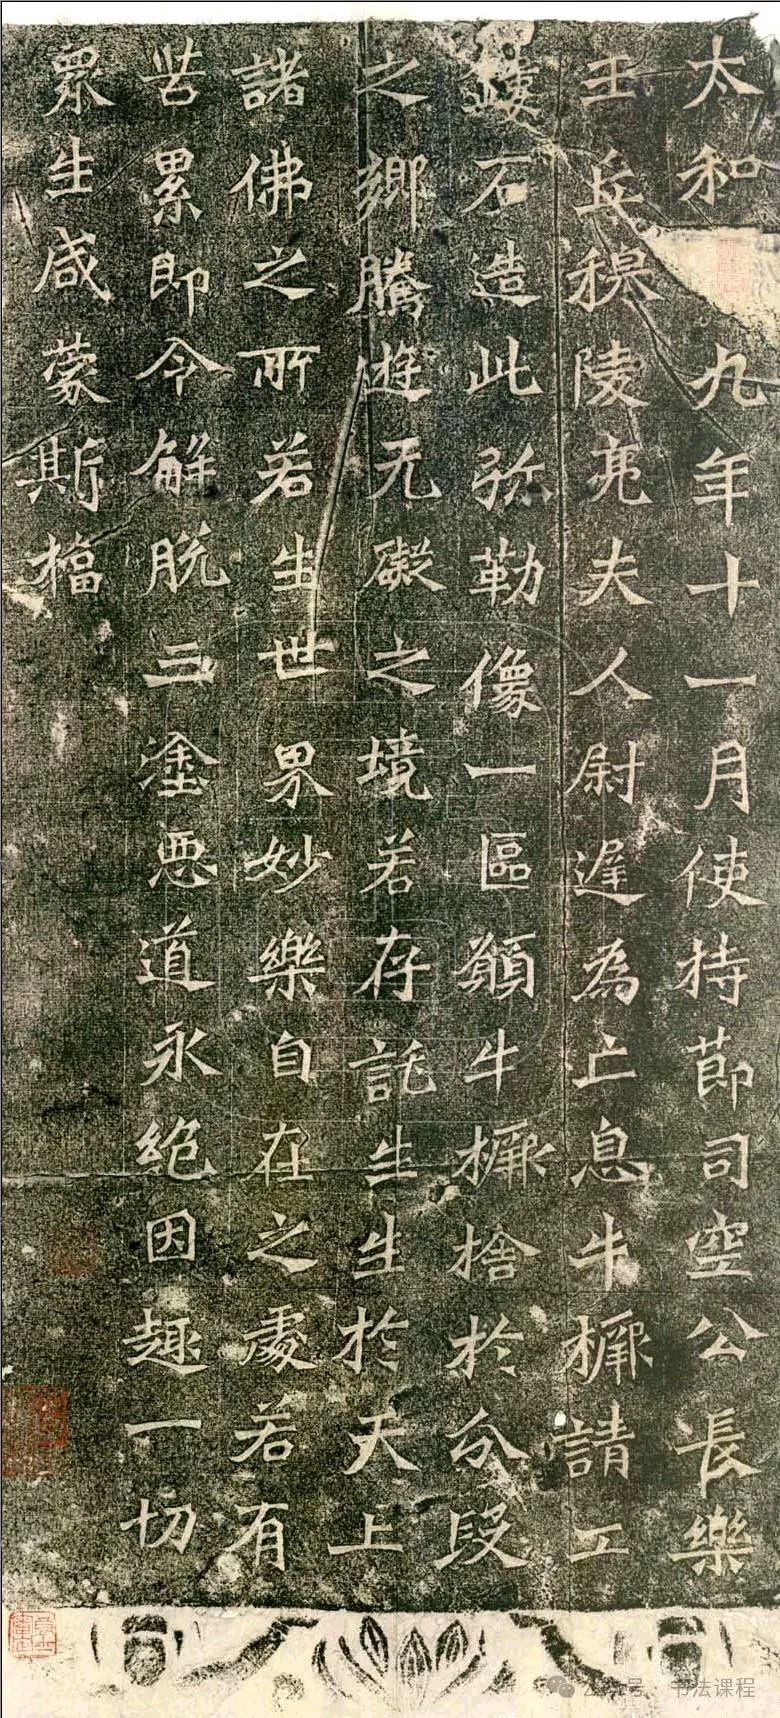 太和九年十一月使持節司空公長樂
王丘穆陵亮夫人尉遲為亡息牛橛請工
鏤石造此弥勒像一區願牛橛捨於分段
之鄉騰遊无礙之境若存託生生於天上
諸佛之所若生世界妙樂自在之處若有
苦累即令解脱三塗惡道永絶因趣一切
眾生咸蒙斯福
公众号 · 书法课程